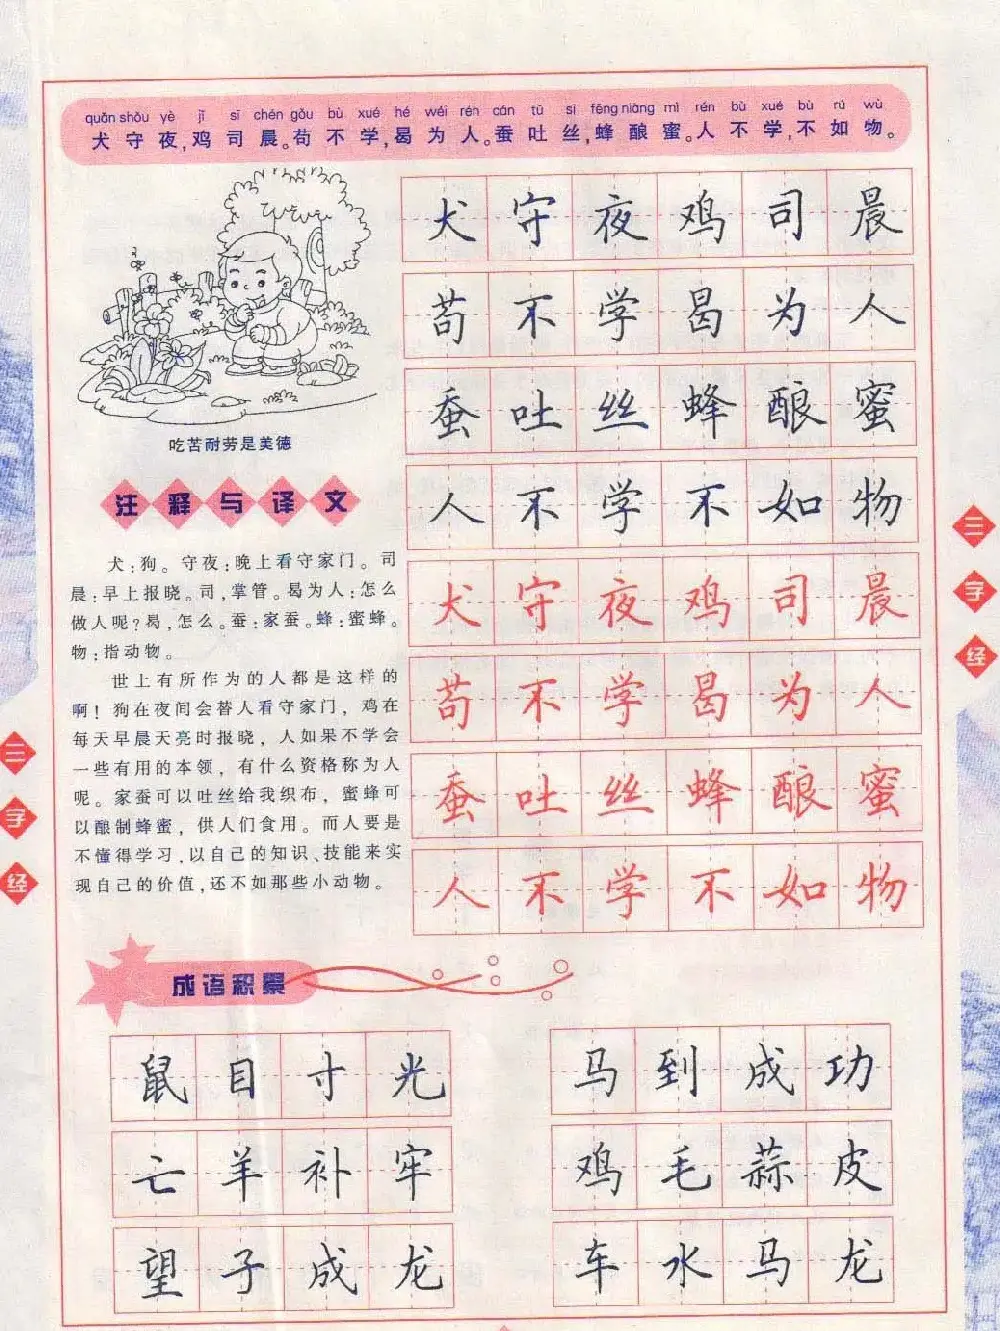 quǎn shǒu yè jī sī chén gǒu bù xué hé wéi rén cán tǔ sī fēng niàng mì rén bù xué bù rú wù
犬守夜,鸡司晨。苟不学,曷为人。蚕吐丝,蜂酿蜜。人不学,不如物。
犬守夜鸡司晨
苟不学曷为人
蚕吐丝蜂酿蜜
人不学不如物
犬守夜鸡司晨
苟不学曷为人
蚕吐丝蜂酿蜜
人不学不如物
吃苦耐劳是美德
注释与译文
犬:狗。守夜:晚上看守家门。司
晨:早上报晓。司,掌管。曷为人:怎么
做人呢?曷,怎么。蚕:家蚕。蜂:蜜蜂。
物:指动物。
世上有所作为的人都是这样的
啊!狗在夜间会替人看守家门,鸡在
每天早晨天亮时报晓,人如果不学会
一些有用的本领,有什么资格称为人
呢。家蚕可以吐丝给我织布,蜜蜂可
以酿制蜂蜜,供人们食用。而人要是
不懂得学习,以自己的知识、技能来实
现自己的价值,还不如那些小动物。
三字经
三字经
成语积累
鼠目寸光
亡羊补牢
望子成龙
马到成功
鸡毛蒜皮
车水马龙